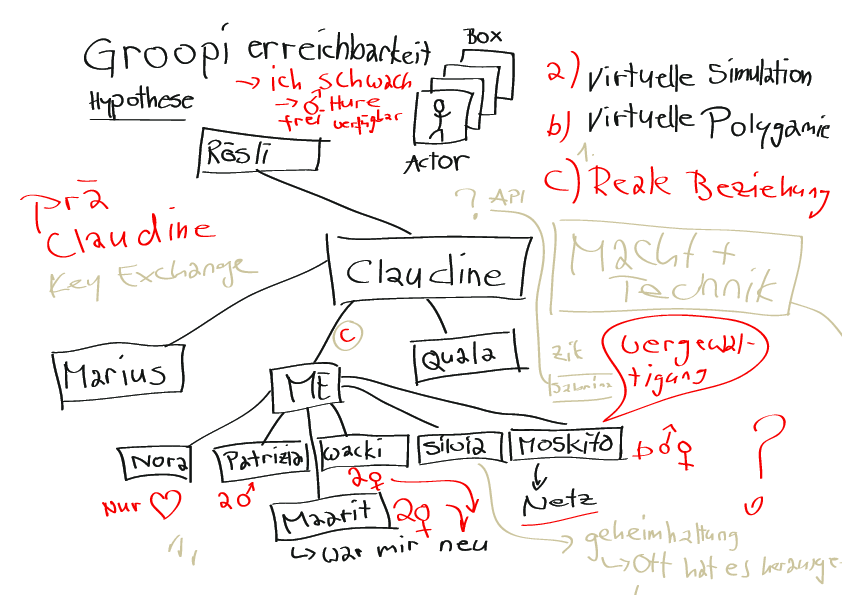 Groopi erreichbarkeit
Hypothese
→ ich schwach
→ ♂ Hure
frei verfügbar
Box
Actor
a) Virtuelle Simulation
b) Virtuelle Polygamie
1.
c) Reale Beziehung
Rösli
prä
Claudine
Key Exchange
? API
Macht +
Technik
Claudine
c
Marius
Quala
zit
vergewal-
tigung
ME
Nora
Patrizia
wacki
Silvia
Moskito
b ♂ ♀
?
nur ♡
2♂
2♀
Maarit
2♀
↳ war mir neu
Netz
geheimhaltung
↳ Ott hat es herausge